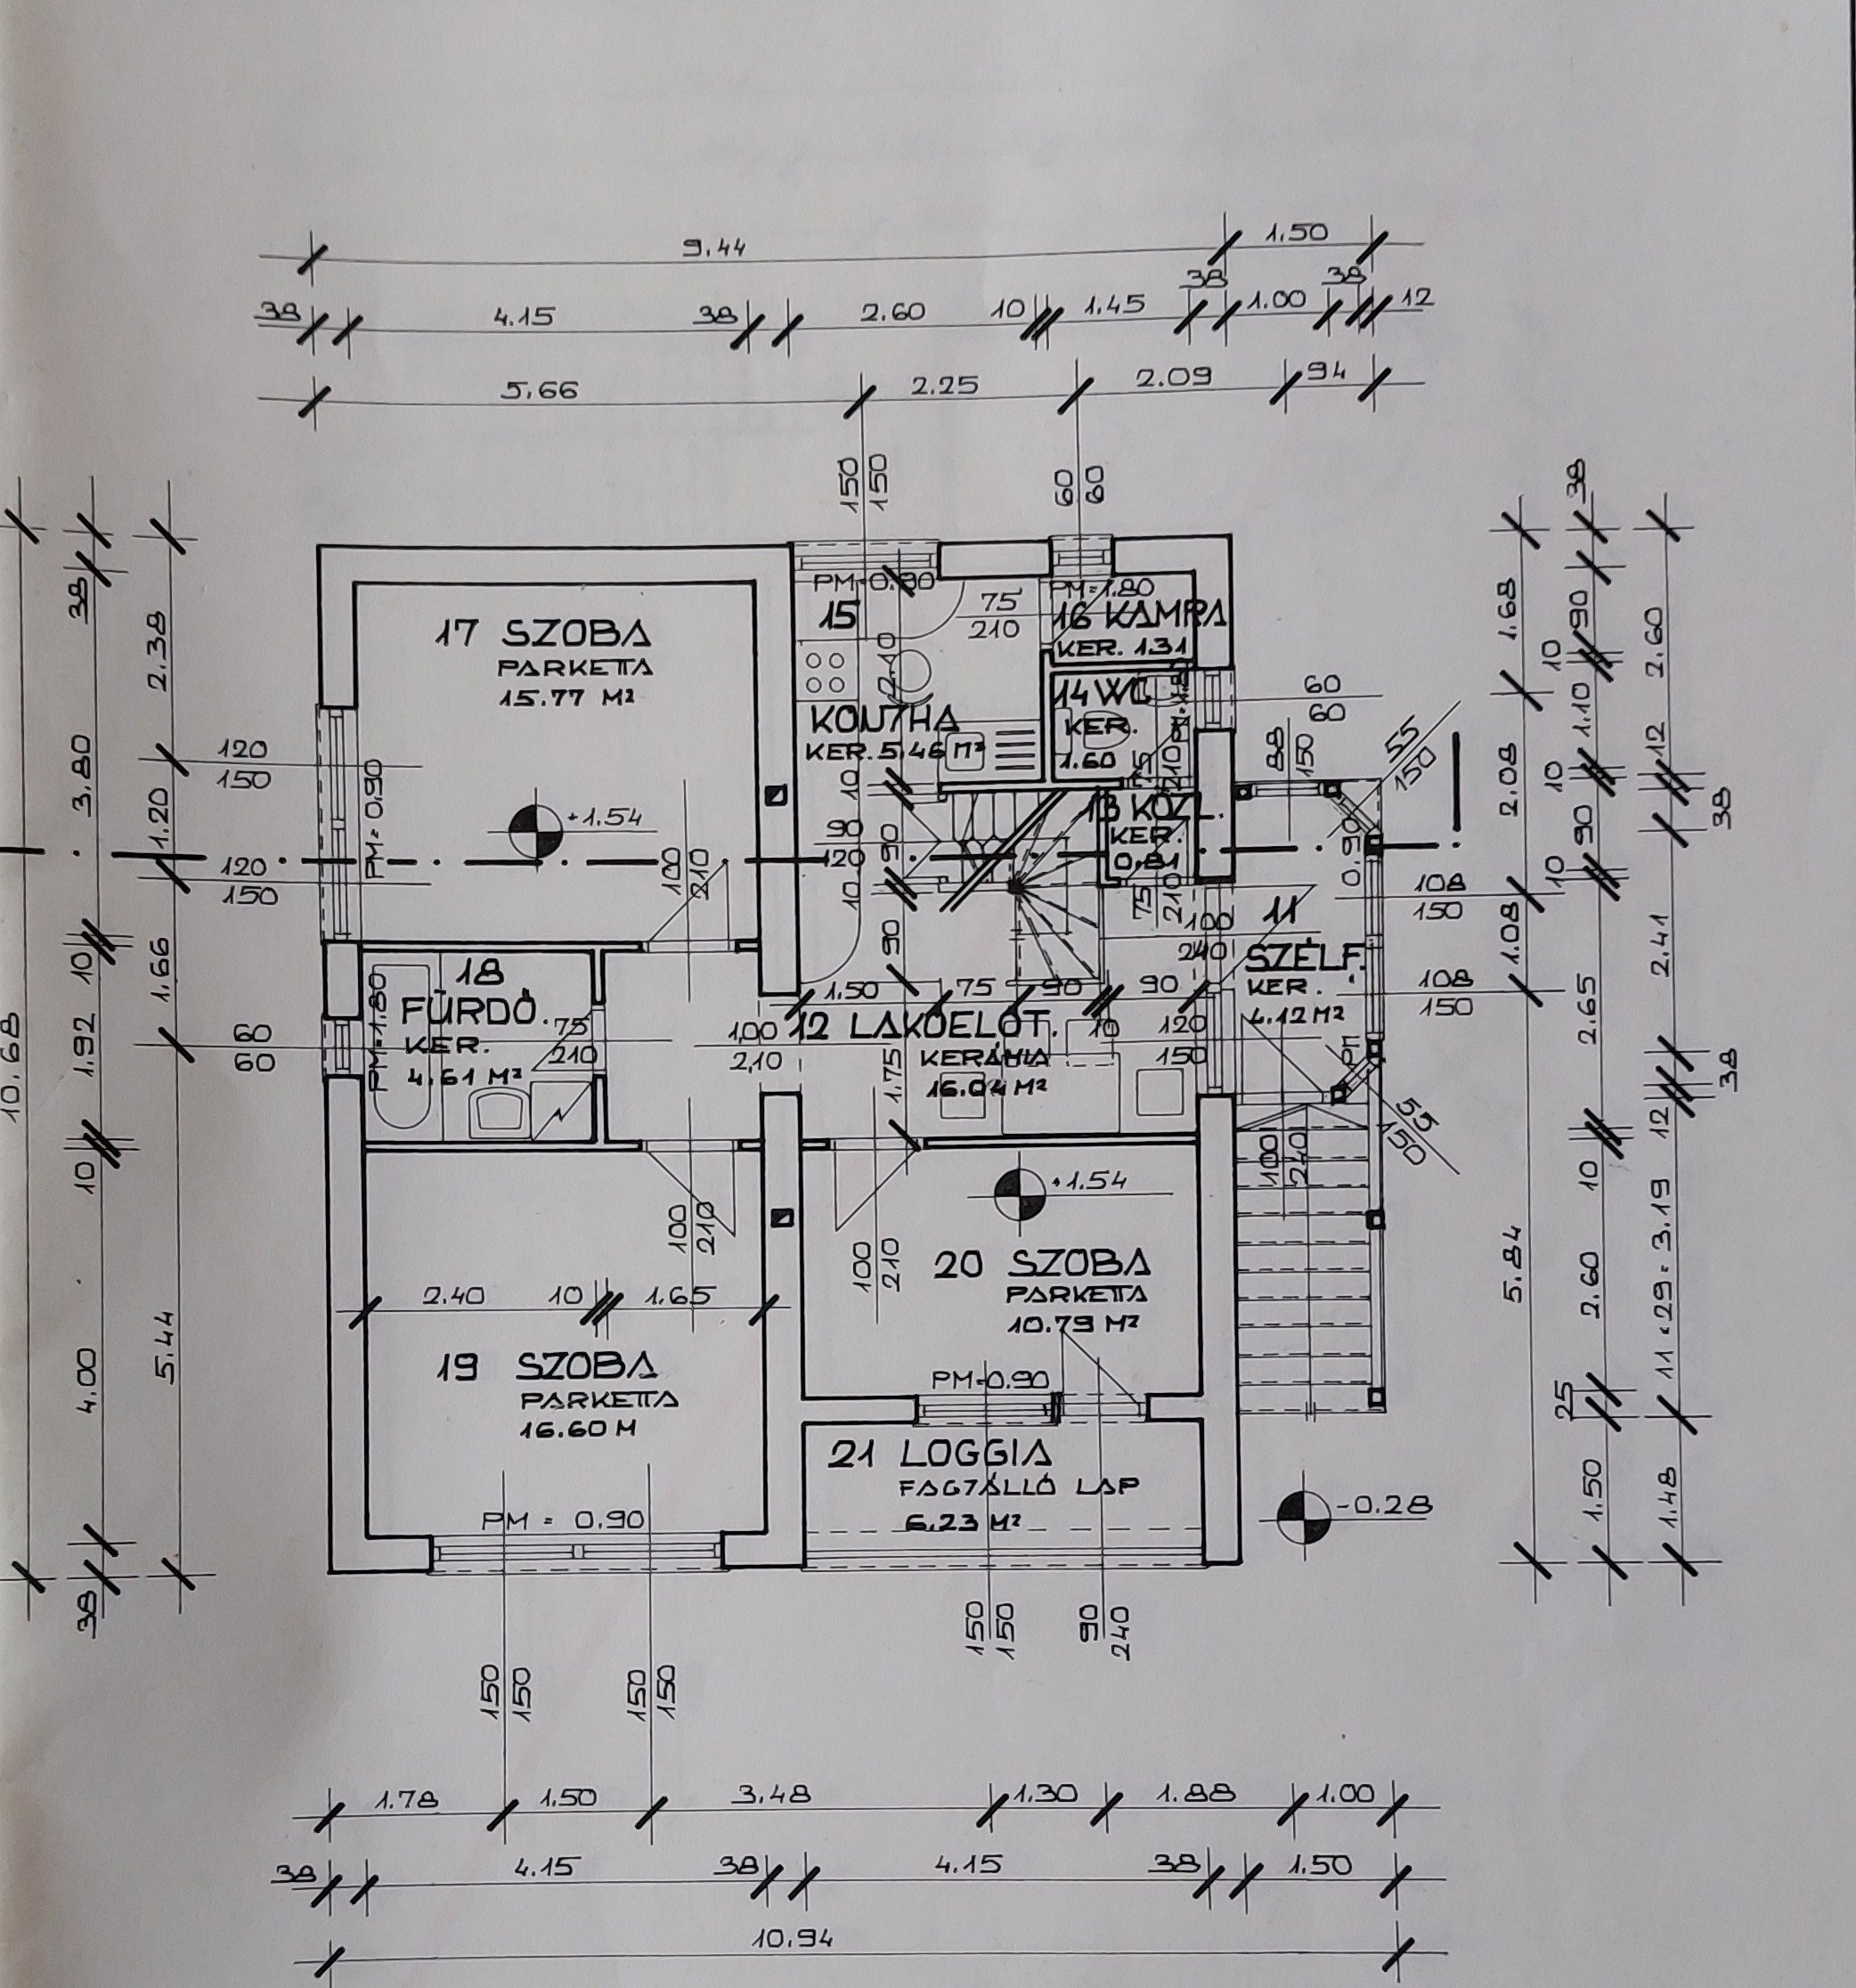 9.44
1.50
38
4.15
38
2.60
10
1.45
38
1.00
38
12
5.66
2.25
2.09
94
150
150
60
60
PM=0.90
PM=1.80
15
75
210
16 KAMRA
KER. 1.31
17 SZOBA
PARKETTA
15.77 M²
2.40
14 WC
KER.
1.60
KONYHA
KER. 5.46 M²
60
60
75
210
88
150
55
150
120
150
PM=0.90
+1.54
10
90
120
90
10
13 KÖZL.
KER.
0.81
0.90
120
150
100
210
75
210
108
150
100
240
11
SZÉLF.
KER.
4.12 M²
90
18
FÜRDŐ.
KER.
4.61 M²
PM=1.80
75
210
60
60
1.50
75
90
90
10
108
150
1,00
2,10
12 LAKÓELŐT.
KERÁMIA
16.04 M²
1.75
120
150
PM
55
150
100
240
+1.54
100
210
100
210
20 SZOBA
PARKETTA
10.79 M²
2.40
10
1.65
19 SZOBA
PARKETTA
16.60 M
PM=0.90
21 LOGGIA
FAGYÁLLÓ LAP
6.23 M²
PM = 0.90
-0.28
150
150
150
150
150
150
90
240
10.68
38
3.80
10
1.92
10
4.00
38
2.38
1.20
1.66
5.44
1.68
2.08
1.08
5.84
38
90
10
1.10
10
90
10
2.65
10
2.60
25
1.50
2.60
12
38
2.41
38
12
11 × 29 = 3.19
1.48
1.78
1.50
3.48
1.30
1.88
1.00
38
4.15
38
4.15
38
1.50
10.94